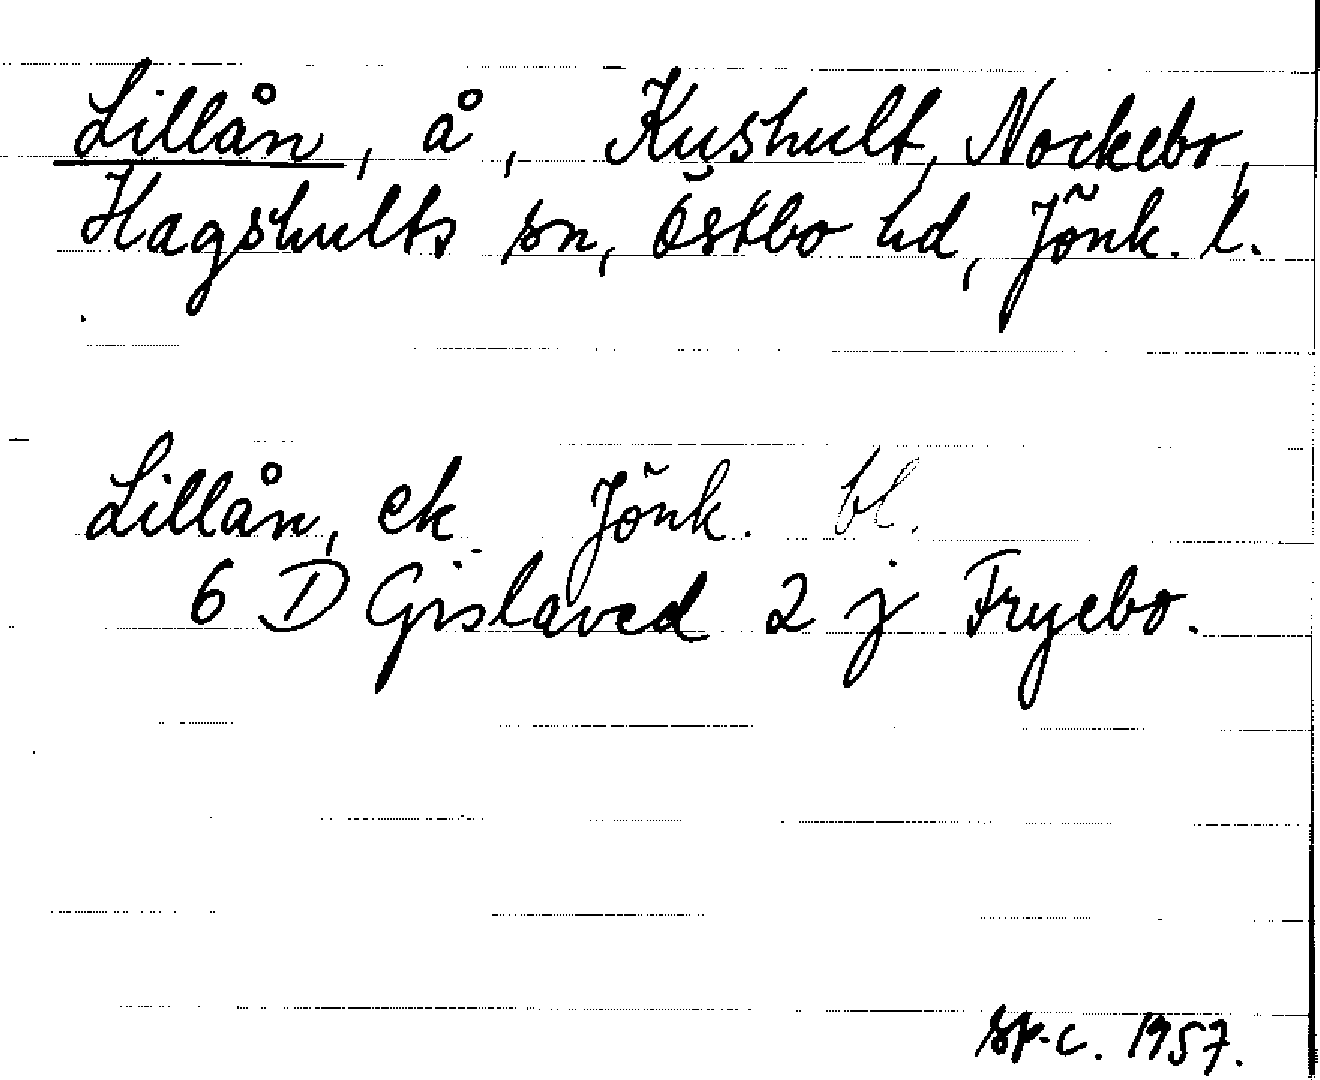 Lillån, å, Kushult, Nockebo,
Hagshults sn, Östbo hd, Jönk. l.
Lillån, ek Jönk. bl.
6 D Gislaved 2 j Fryebo.
Sk-c. 1957.